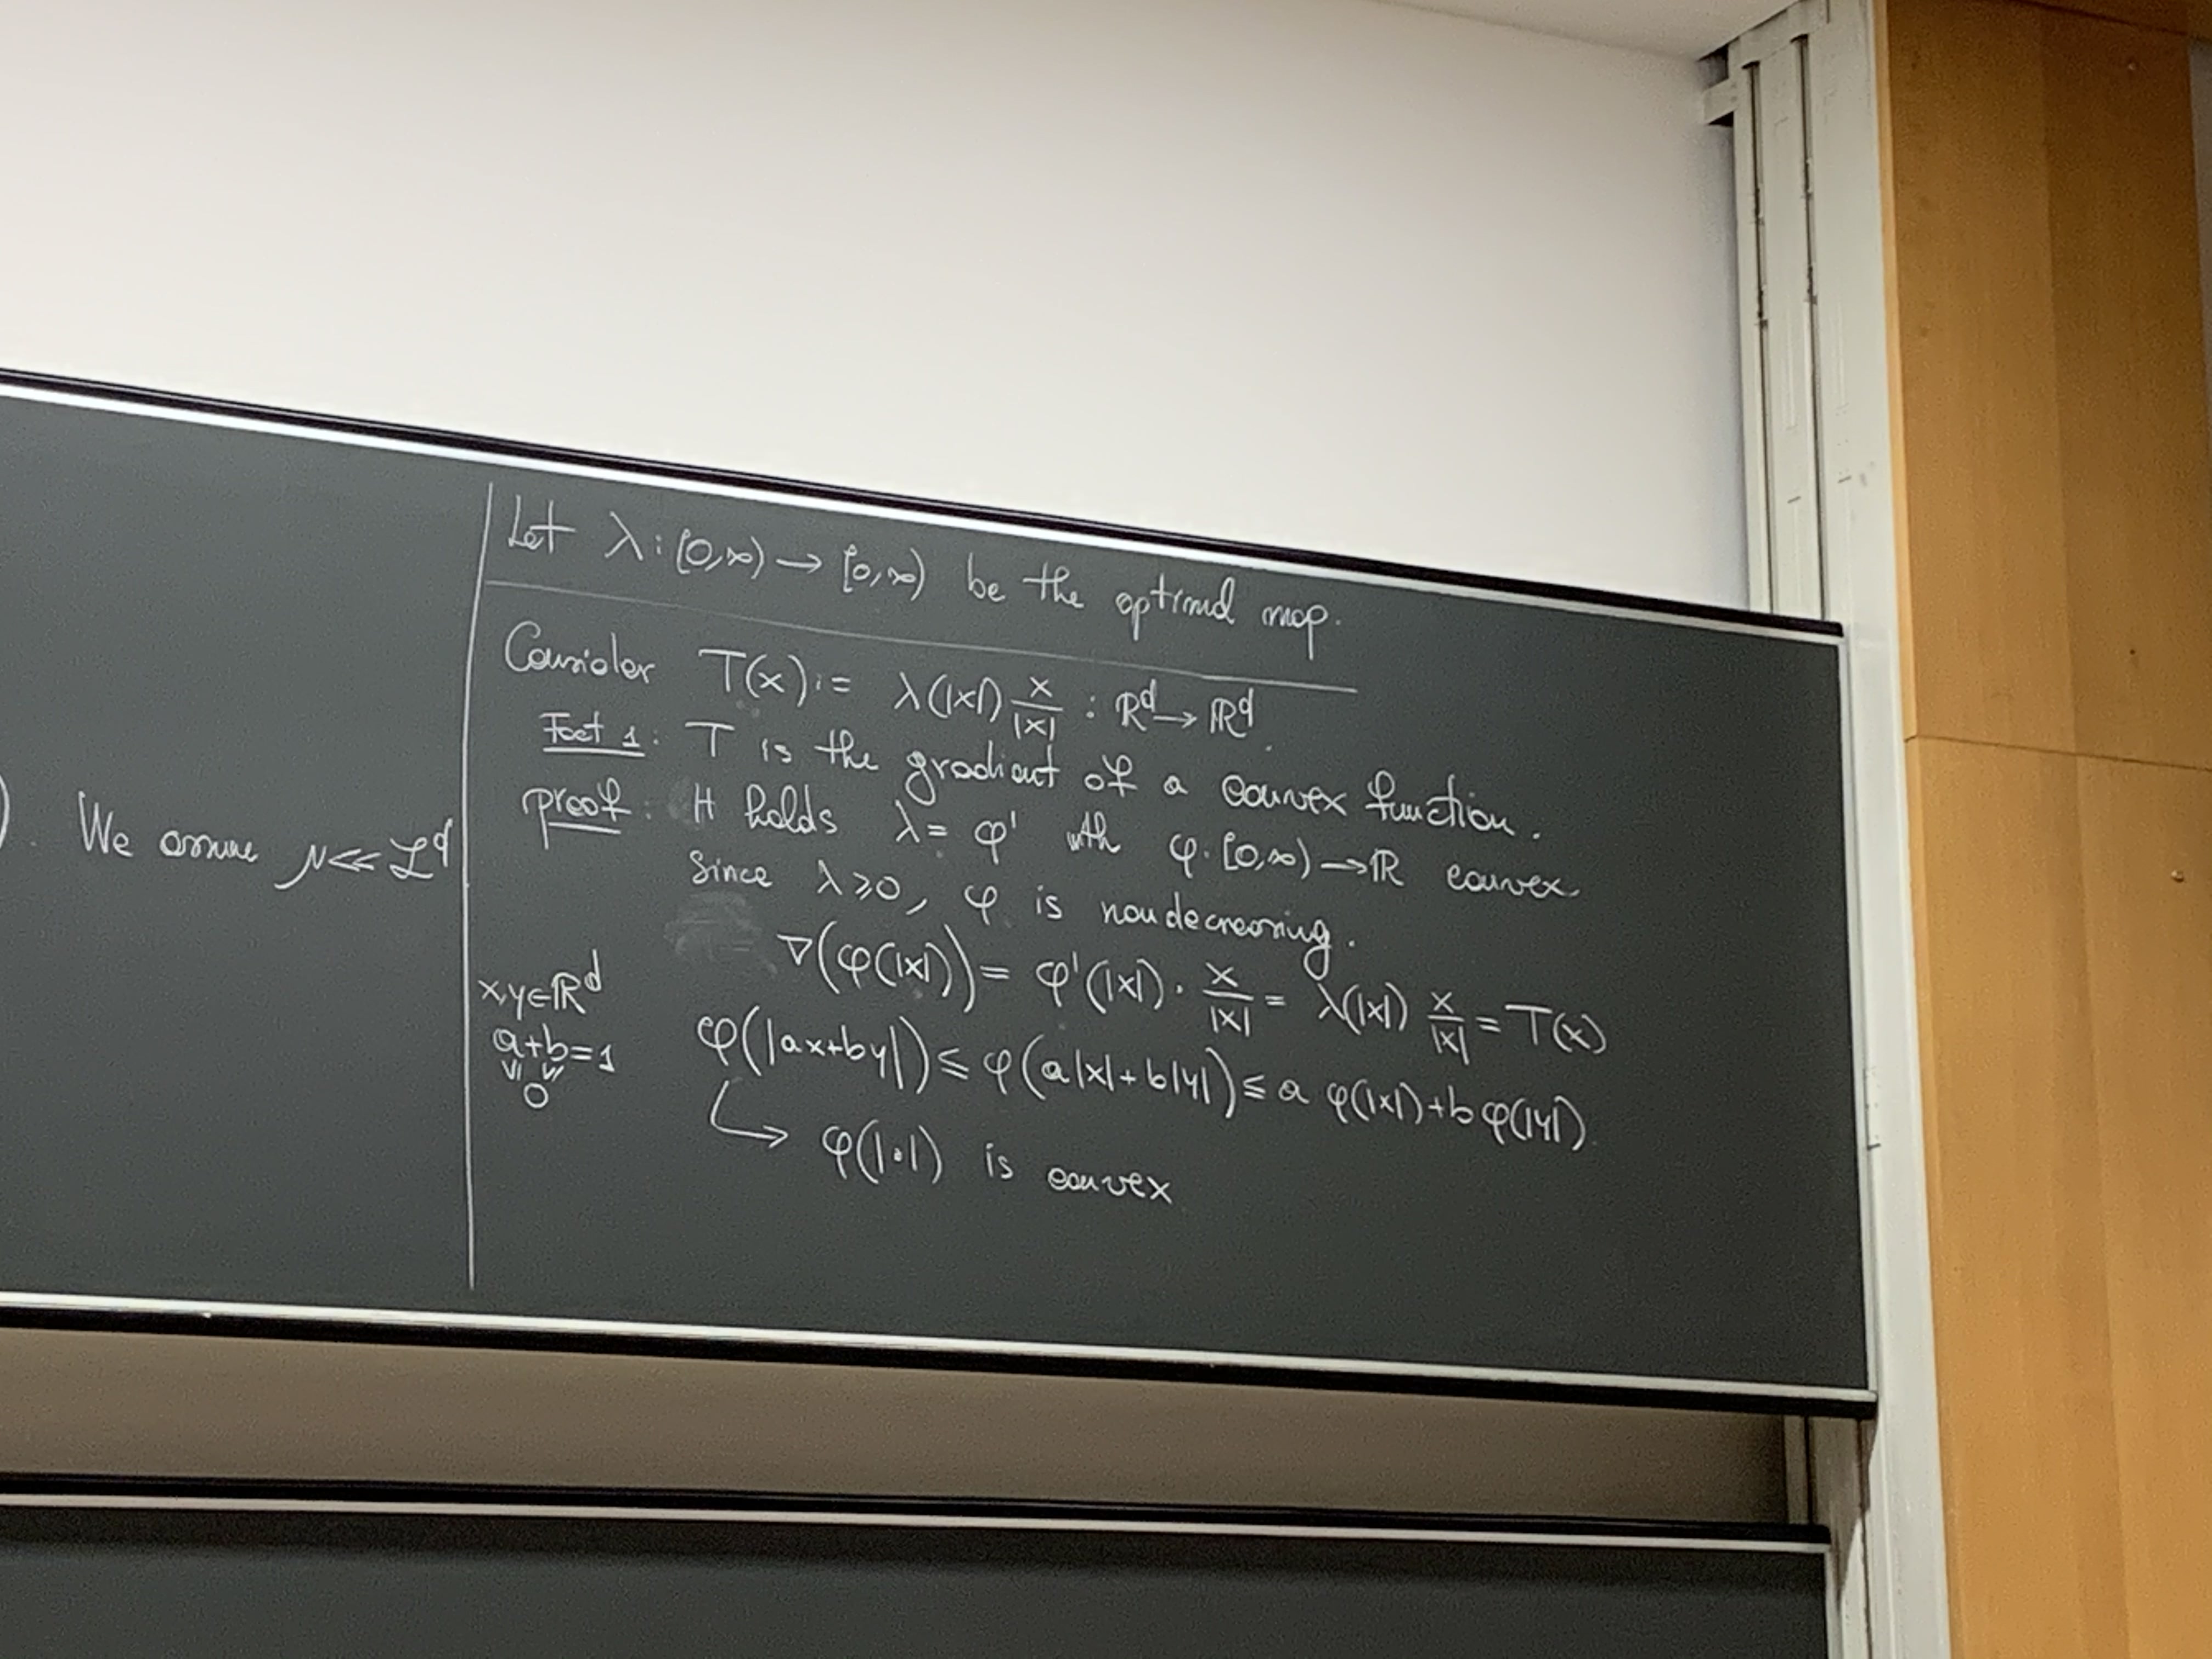 ). We assume μ<<ℒᵈ
Let λ:[0,∞) → [0,∞) be the optimal map.
Consider T(x):= λ(|x|) x/|x| : ℝᵈ → ℝᵈ.
Fact 1: T is the gradient of a convex function.
proof: It holds λ = φ' with φ:[0,∞) → ℝ convex.
Since λ ≥ 0, φ is nondecreasing.
∇(φ(|x|)) = φ'(|x|) · x/|x| = λ(|x|) x/|x| = T(x)
x,y∈ℝᵈ
a+b=1
VI VI
0
φ(|ax+by|) ≤ φ(a|x|+b|y|) ≤ a φ(|x|)+b φ(|y|).
↳ φ(|·|) is convex